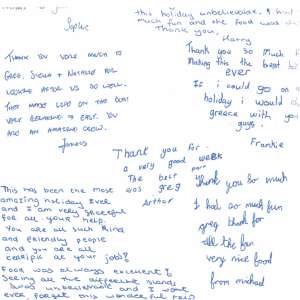 Sophie
this holiday unbelievable. I had
much fun and the food was
Thank you,
Harry
THANK YOU VERY MUCH TO
GREG, SIGNE + NATASHA FOR
LOOKING AFTER US SO WELL.
THEY MAKE LIFE ON THE BOAT
VERY RELAXING + EASY. YOU
ARE AN AMAZING CREW.
James
Thank you so much
Making this the best
ever
If i could go on a
holiday i would
greece with you
guys.
Frankie
Thank you for
a very good week
The best
greg
Arthur
This has been the most
amazing holiday ever
and I am very grateful
for all your help.
You are all such kind
and friendly people
and you are all
terrific at your jobs!
Food was always excellent!
Seeing all the different
was unbelievable and I wont
ever forget this wonderful trip
Thank you so much
I had so much fun
greg thank for
all the fun
very nice food
from michael